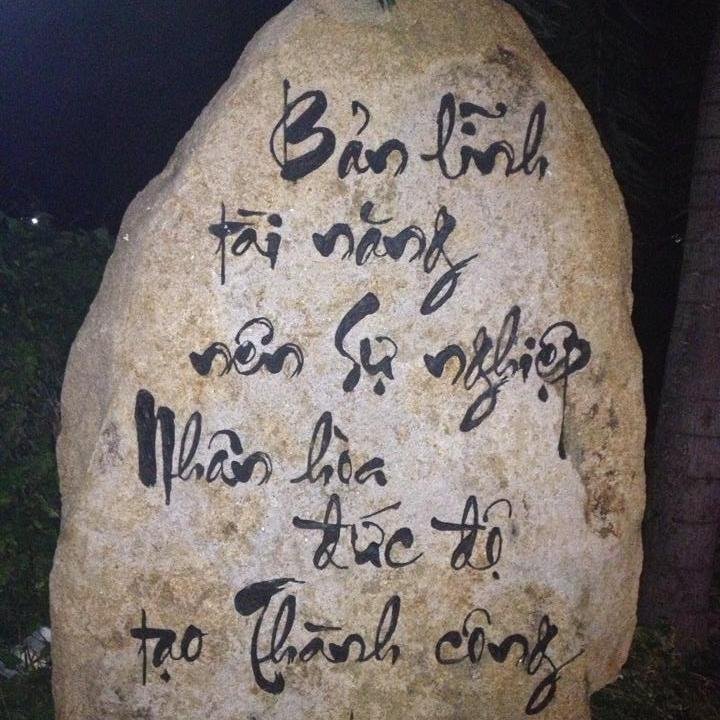 Bản lĩnh
tài năng
nên Sự nghiệp
Nhân hòa
đức độ
tạo Thành công